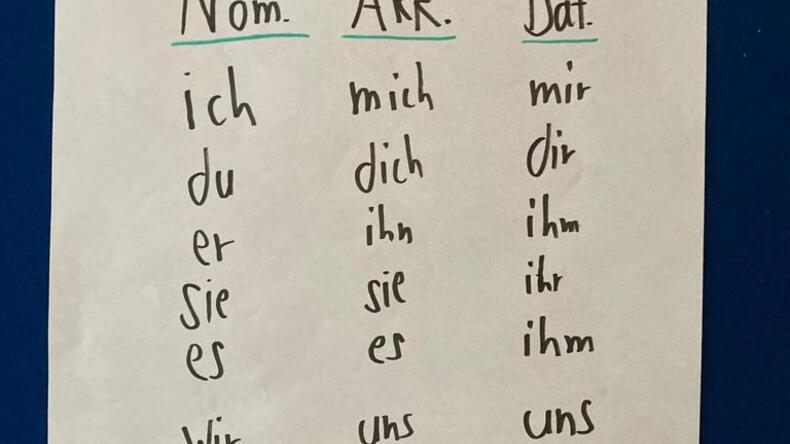 Nom. Akk. Dat.
ich mich mir
du dich dir
er ihn ihm
sie sie ihr
es es ihm
Wir uns uns